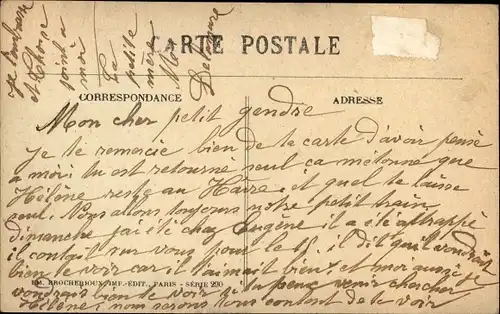 CARTE POSTALE
CORRESPONDANCE
ADRESSE
Mon cher petit gendre
Je te remercie bien de ta carte d'avoir pensé
a moi. tu est retourné seul ça m'etonne que
Hélène reste au Havre et quel te laisse
seul. Nous allons toujours notre petit train
dimanche j'ai été chez Eugène il a été attrappé
il contait sur vous pour le 15. il dit qu'il voudrait
bien le voir car il l'aimait bien. et moi aussi je
voudrais bien te voir si tu peux venir chercher
Hélène; nous serons tous content de te voir
EM. BROCHERIOUX, IMP.-ÉDIT., PARIS - SÉRIE 290
Je t'embrasse
et
joint à
moi
La
petite
mère